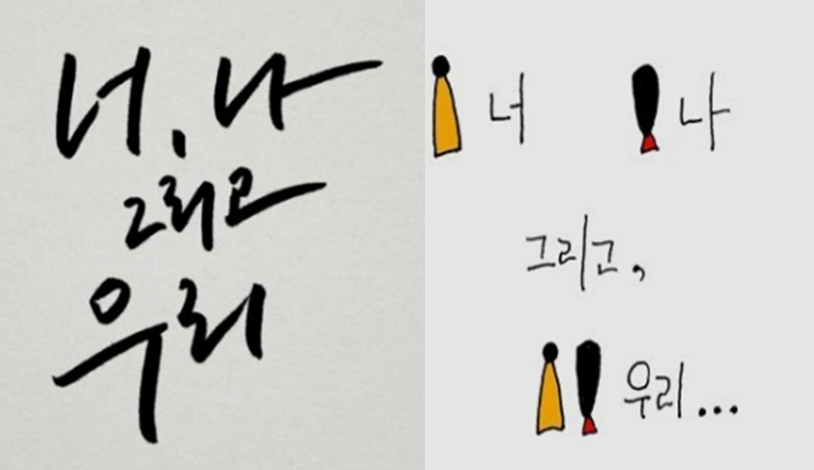 너, 나
그리고
우리
너 나
그리고,
우리...